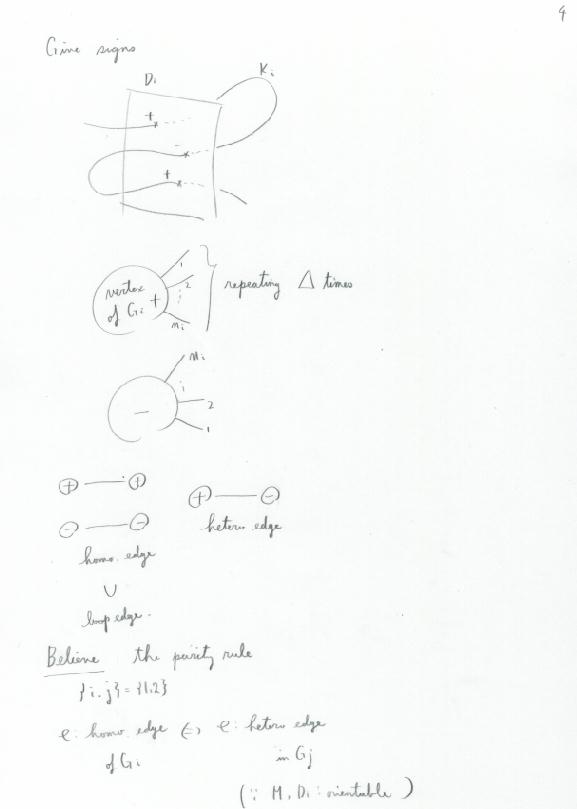 4
Give signs
Di
Ki
+
-
+
vertex
of Gi +
1
2
ni
repeating Δ times
ni
2
1
−
⊕ — ⊕
⊖ — ⊖
homo. edge
⊕ — ⊖
hetero. edge
∪
loop edge.
Believe the parity rule
{i, j} = {1, 2}
e : homo edge ⇔ e : hetero edge
of Gi
in Gj
(∵ M, Di : orientable)